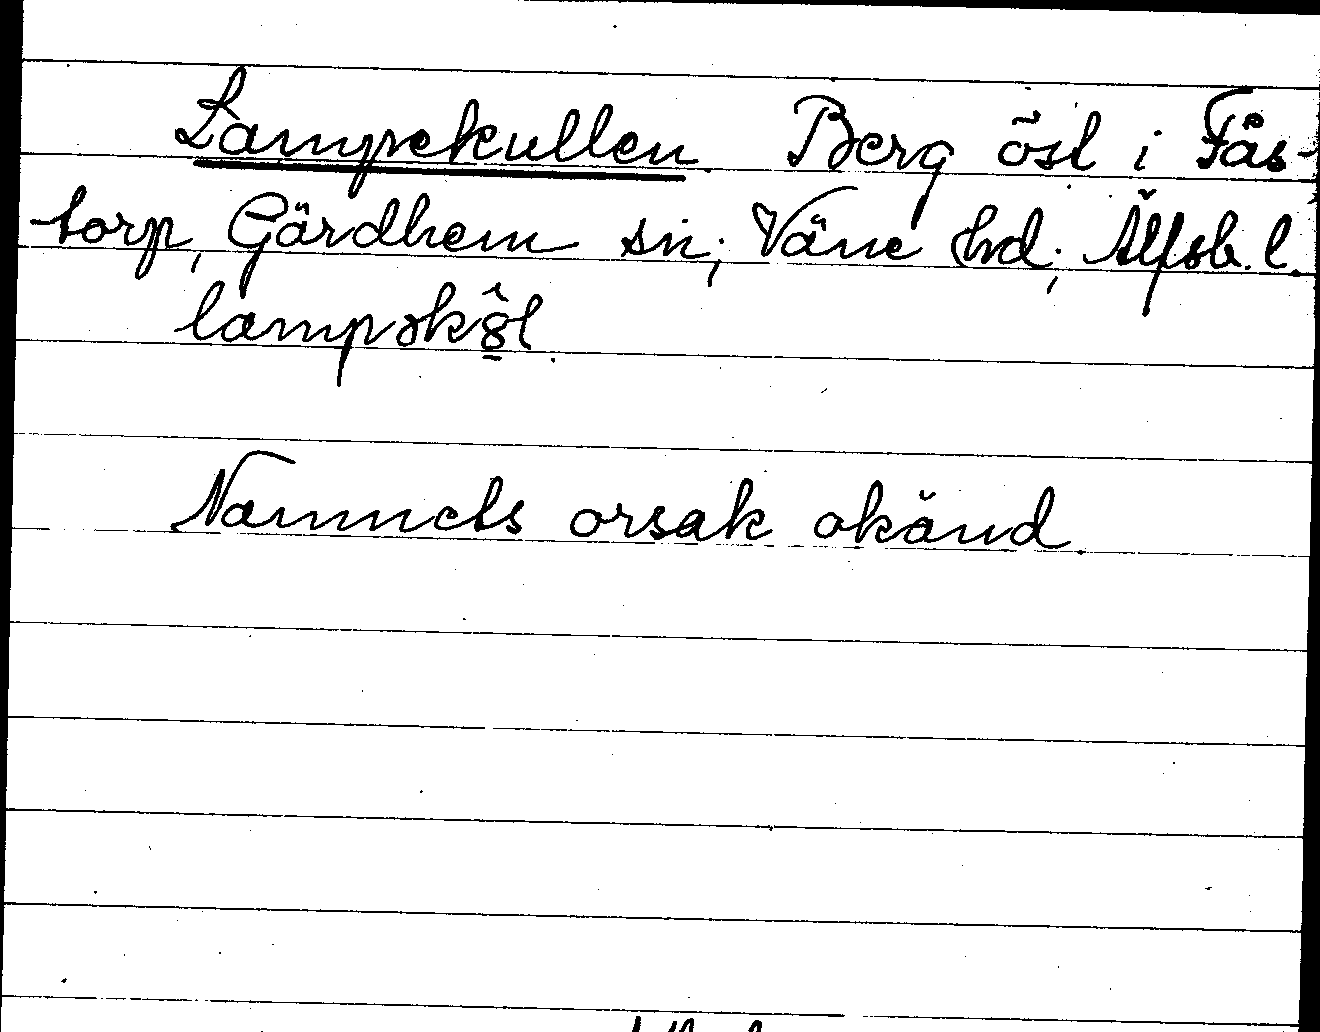 Lampekullen Berg östl i Fås-
torp, Gärdhem sn; Väne hd; Älfsb. l.
lampək8̂l
Namnets orsak okänd.